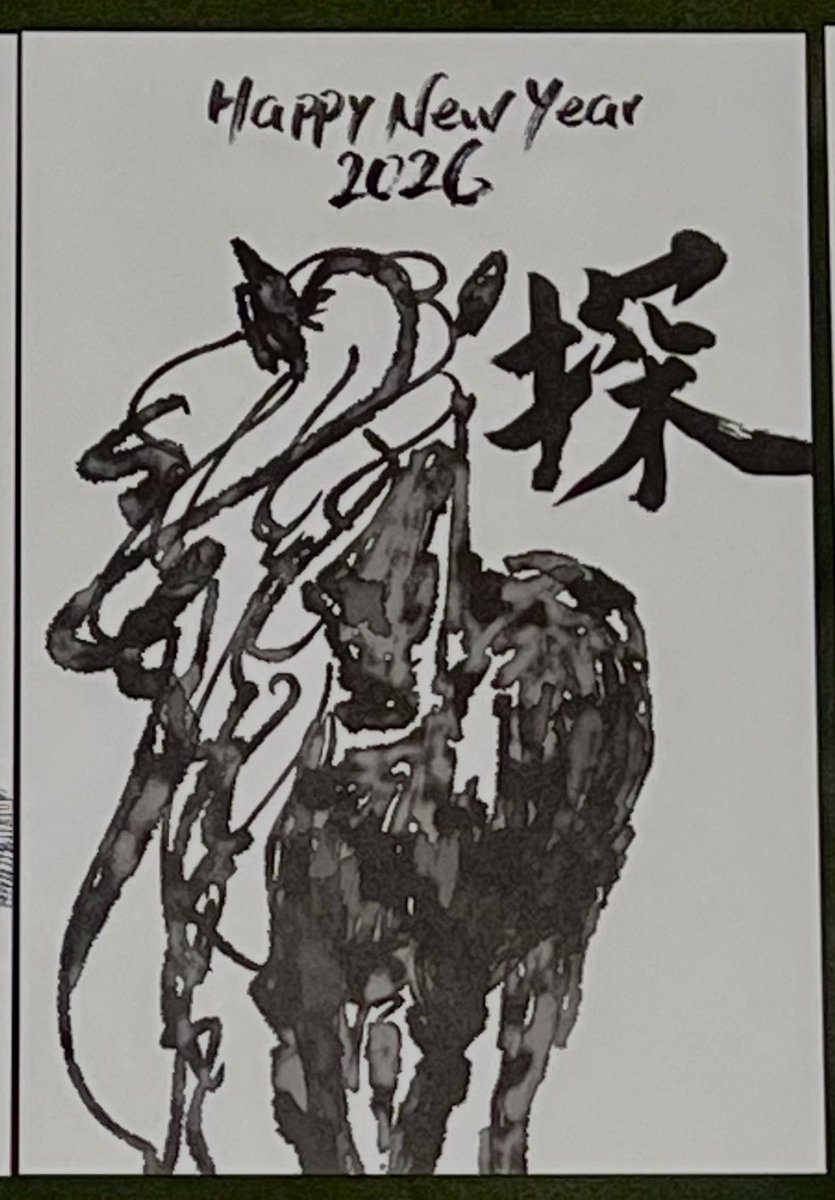 Happy New Year
2026
探